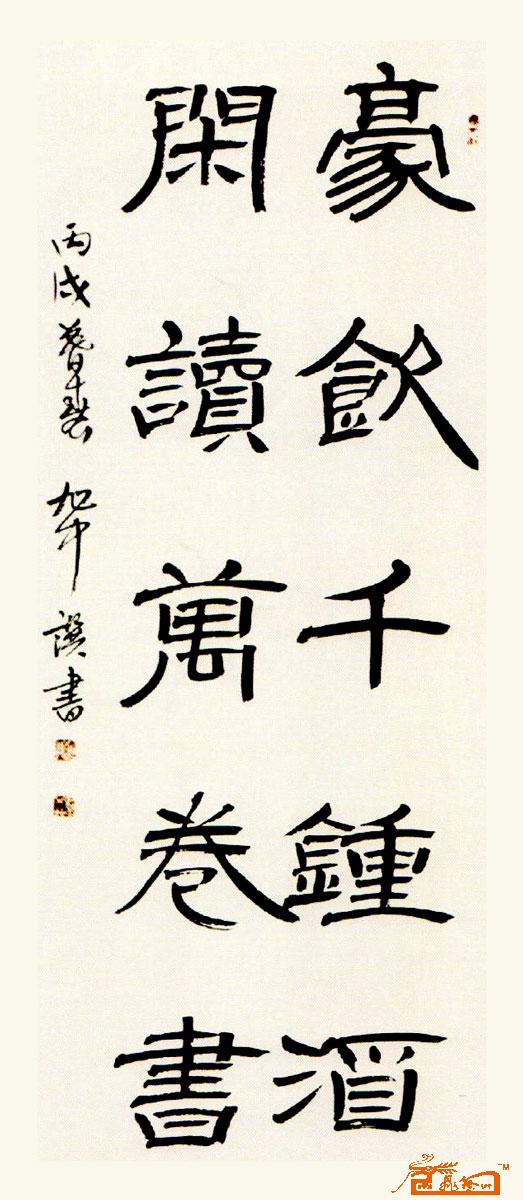 豪飲千鍾酒
閑讀萬卷書
丙戌 撰書